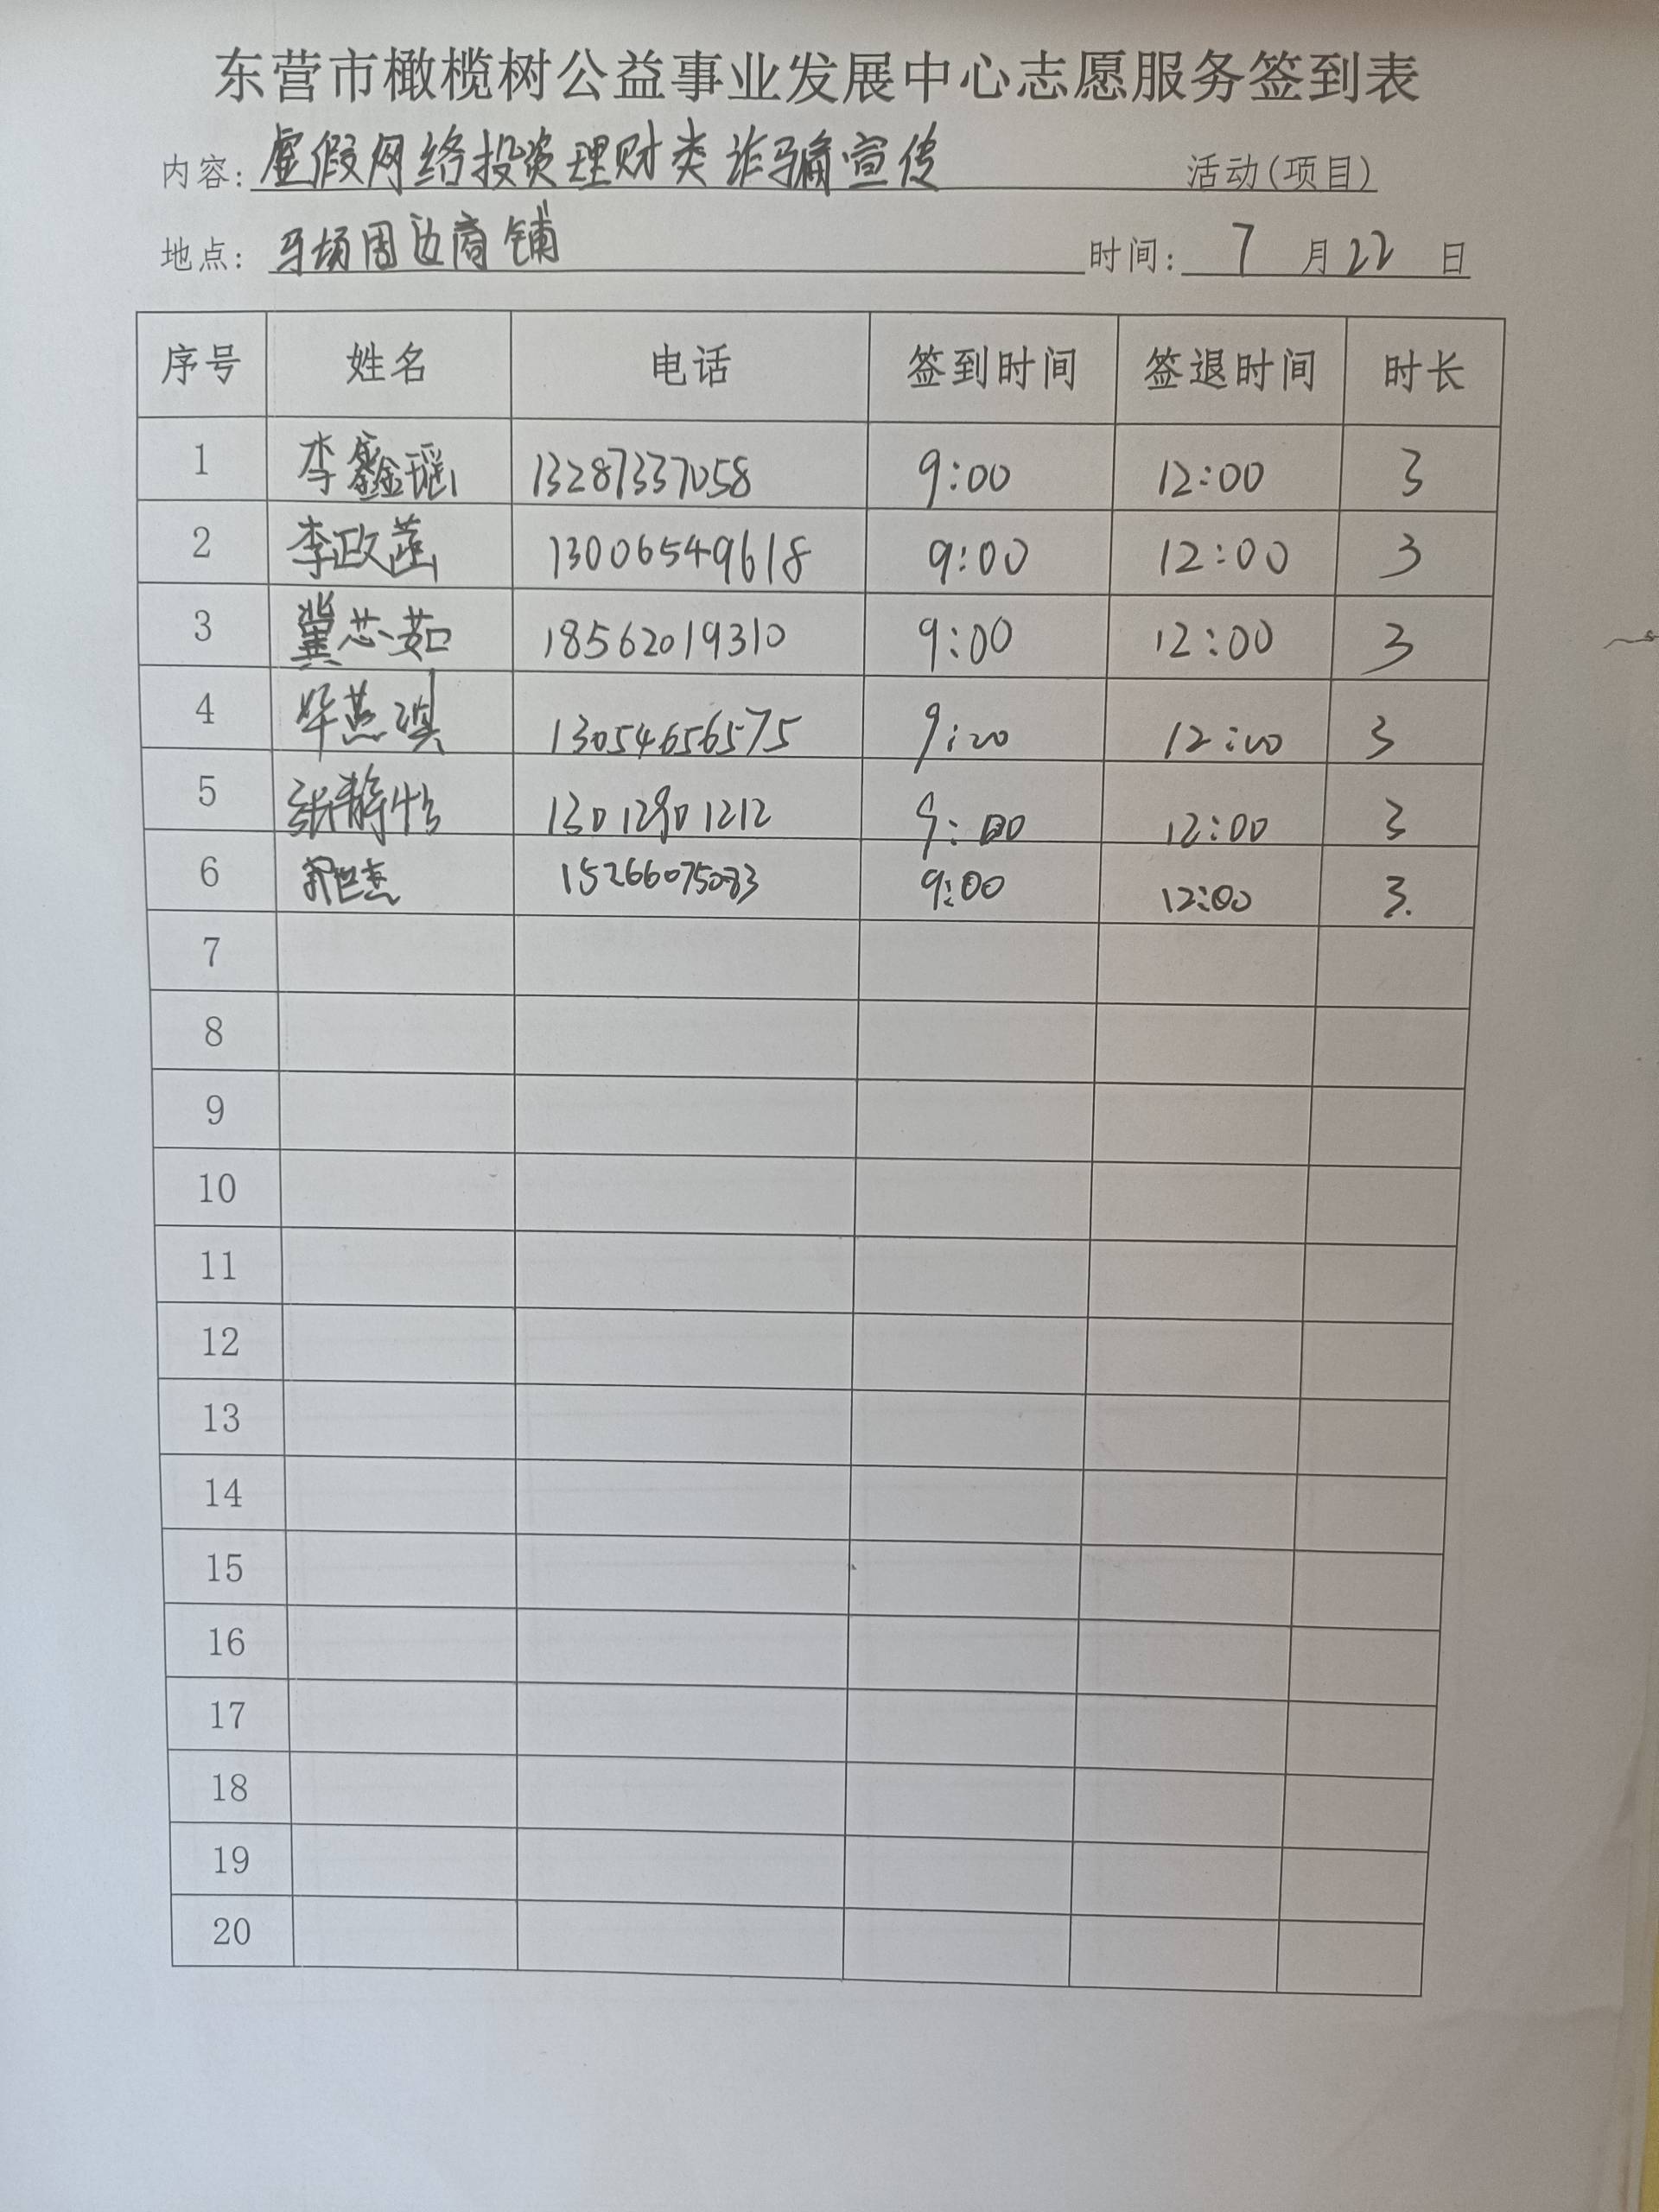 东营市橄榄树公益事业发展中心志愿服务签到表
内容: 虚假网络投资理财类诈骗宣传 活动(项目)
地点: 马场周边商铺 时间: 7 月 22 日
序号 姓名 电话 签到时间 签退时间 时长
1 李鑫瑶 13287337058 9:00 12:00 3
2 李政菡 13006549618 9:00 12:00 3
3 冀芯茹 18562019310 9:00 12:00 3
4 华燕琪 13054656575 9:00 12:00 3
5 张静怡 13012901212 9:00 12:00 3
6 15266075083 9:00 12:00 3.
7
8
9
10
11
12
13
14
15
16
17
18
19
20